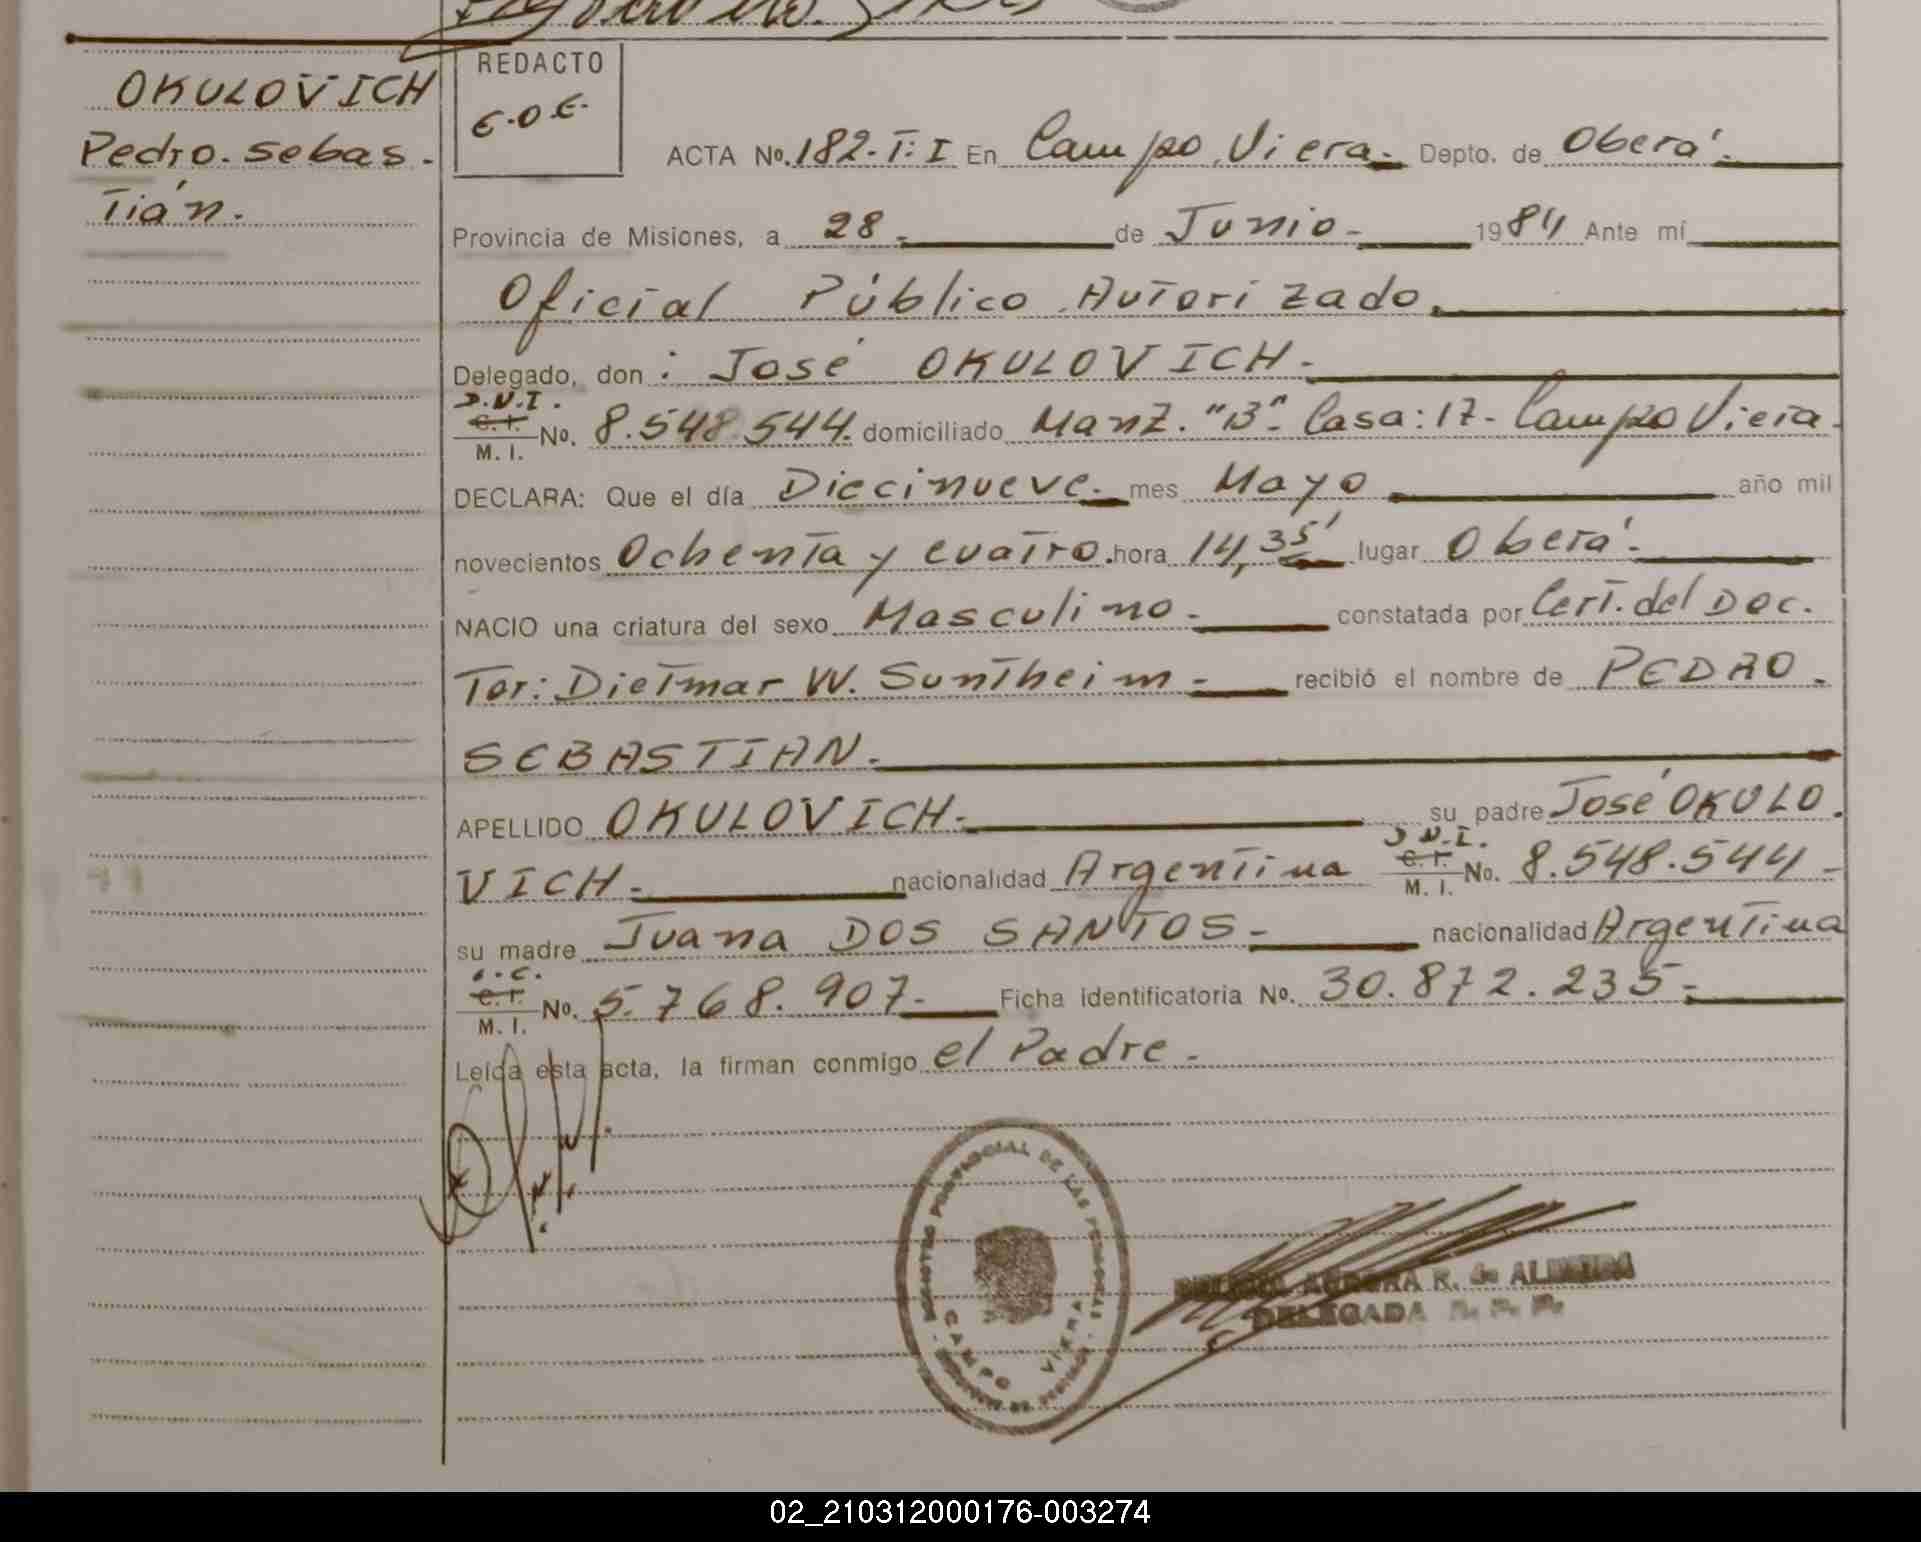 OKULOVICH
Pedro. Sebas-
Tián.
REDACTO
E.O.E.
ACTA No. 182-T: I En Campo Viera.- Depto. de Oberá.
Provincia de Misiones, a 28.- de Junio.- 1984 Ante mí
Oficial Público Autorizado.
Delegado, don: José OKULOVICH.-
D.N.I.
C. I.
M. I. No. 8.548.544. domiciliado Manz. "B". Casa: 17- Campo Viera.
DECLARA: Que el día Diecinueve.- mes Mayo año mil
novecientos Ochenta y cuatro. hora 14,35' lugar Oberá.
NACIO una criatura del sexo Masculino.- constatada por Cert. del Doc.
Tor: Dietmar W. Suntheim.- recibió el nombre de PEDRO.
SEBASTIAN.
APELLIDO OKULOVICH.- su padre José OKULO.
VICH.- nacionalidad Argentina D.N.I. C. I. M. I. No. 8.548.544-
su madre Juana DOS SANTOS.- nacionalidad Argentina
C. I.
M. I. No. 5.768.907.- Ficha identificatoria No. 30.872.235.-
Leída esta acta, la firman conmigo el Padre.-
REGISTRO PROVINCIAL DE LAS PERSONAS
CAMPO VIERA
R. de ALMEIDA
DELEGADA
02_210312000176-003274